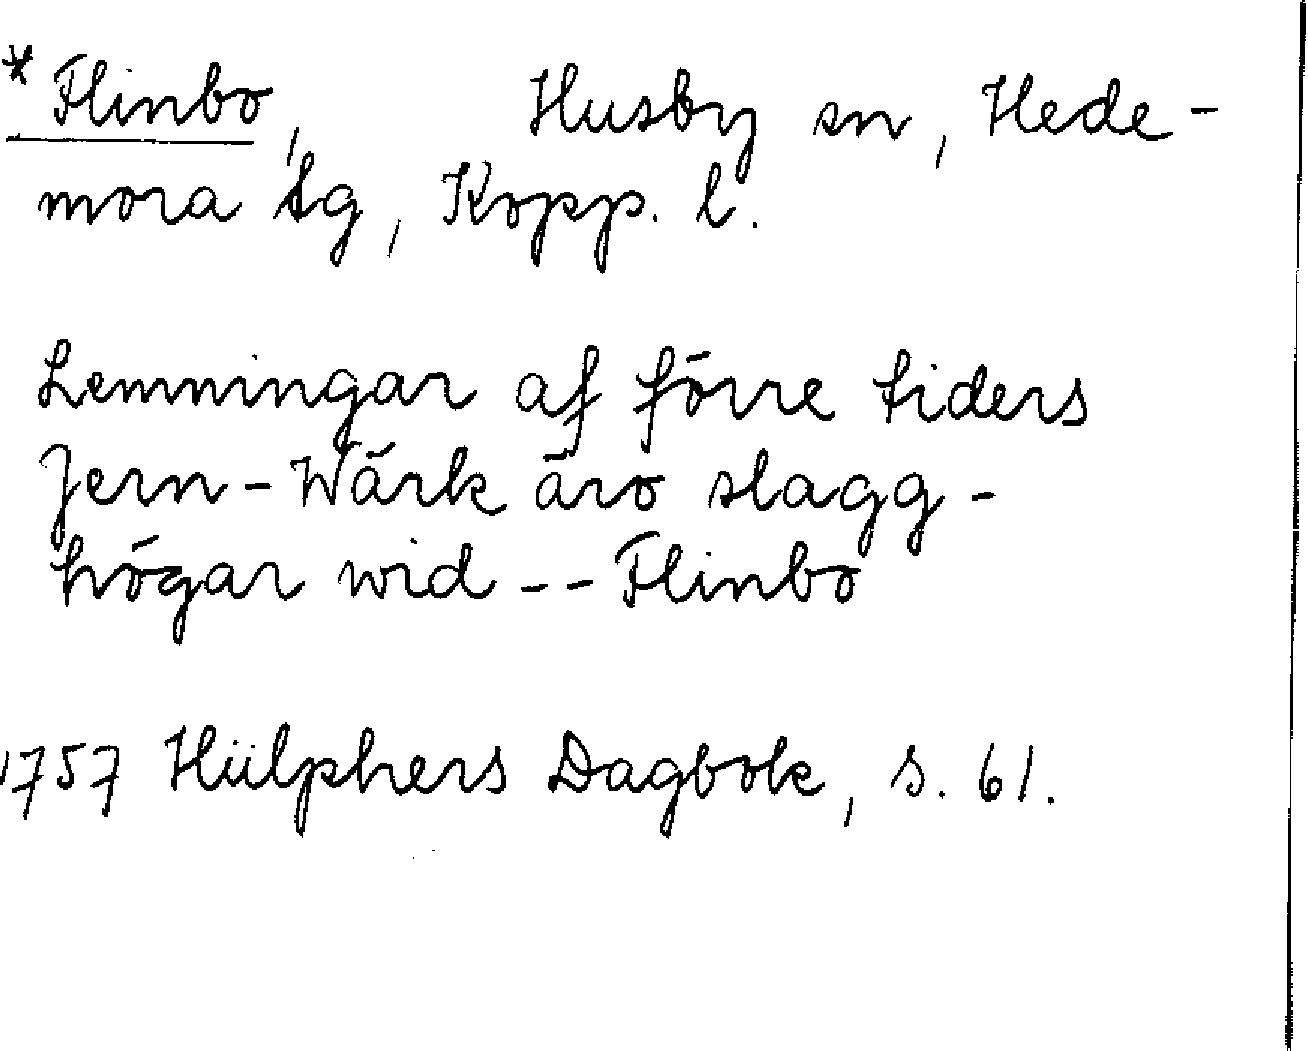 * Flinbo, Husby sn, Hede-
mora tg, Kopp. l.
Lemningar af förre tiders
Jern-Wärk äro slagg-
högar wid -- Flinbo
1757 Hülphers Dagbok, s. 61.